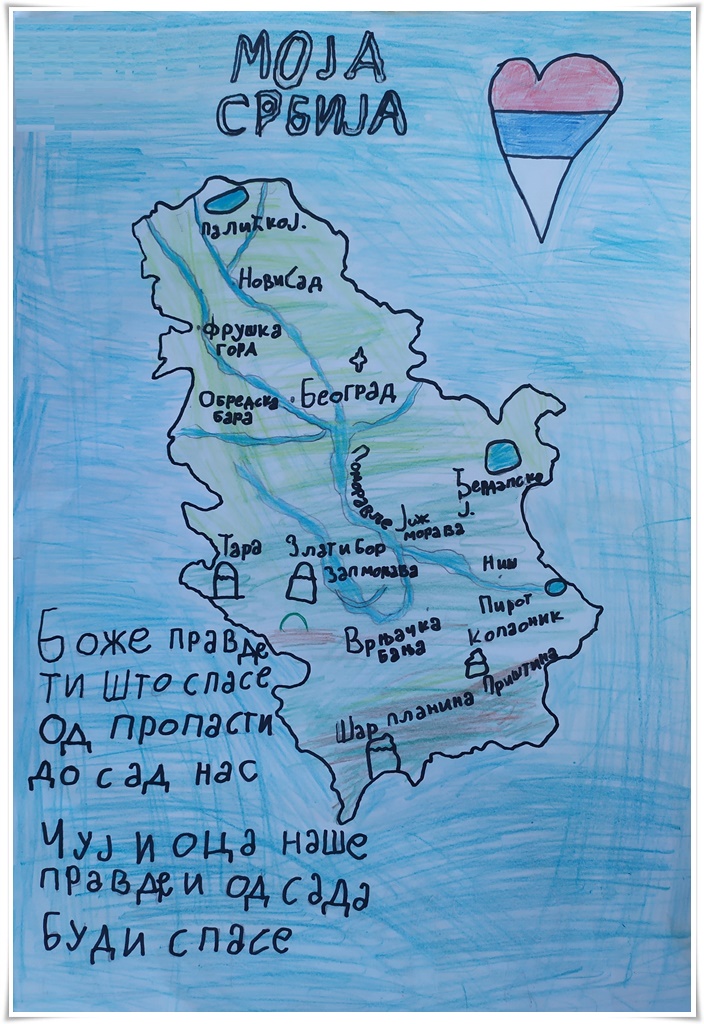 МОЈА
СРБИЈА
ПАЛИЋКО Ј.
НОВИ САД
ФРУШКА
ГОРА
БЕОГРАД
ОБРЕДСКА
БАРА
ПОМОРАВЉЕ
ЂЕРДАПСКО
Ј.
ЈУЖ
МОРАВА
ТАРА
ЗЛАТИБОР
ЗАП МОРАВА
НИШ
ПИРОТ
ВРЊАЧКА
БАЊА
КОПАОНИК
ПРИШТИНА
ШАР ПЛАНИНА
БОЖЕ ПРАВДЕ
ТИ ШТО СПАСЕ
ОД ПРОПАСТИ
ДО САД НАС
ЧУЈ И ОЦА НАШЕ
ПРАВДЕ И ОД САДА
БУДИ СПАСЕ